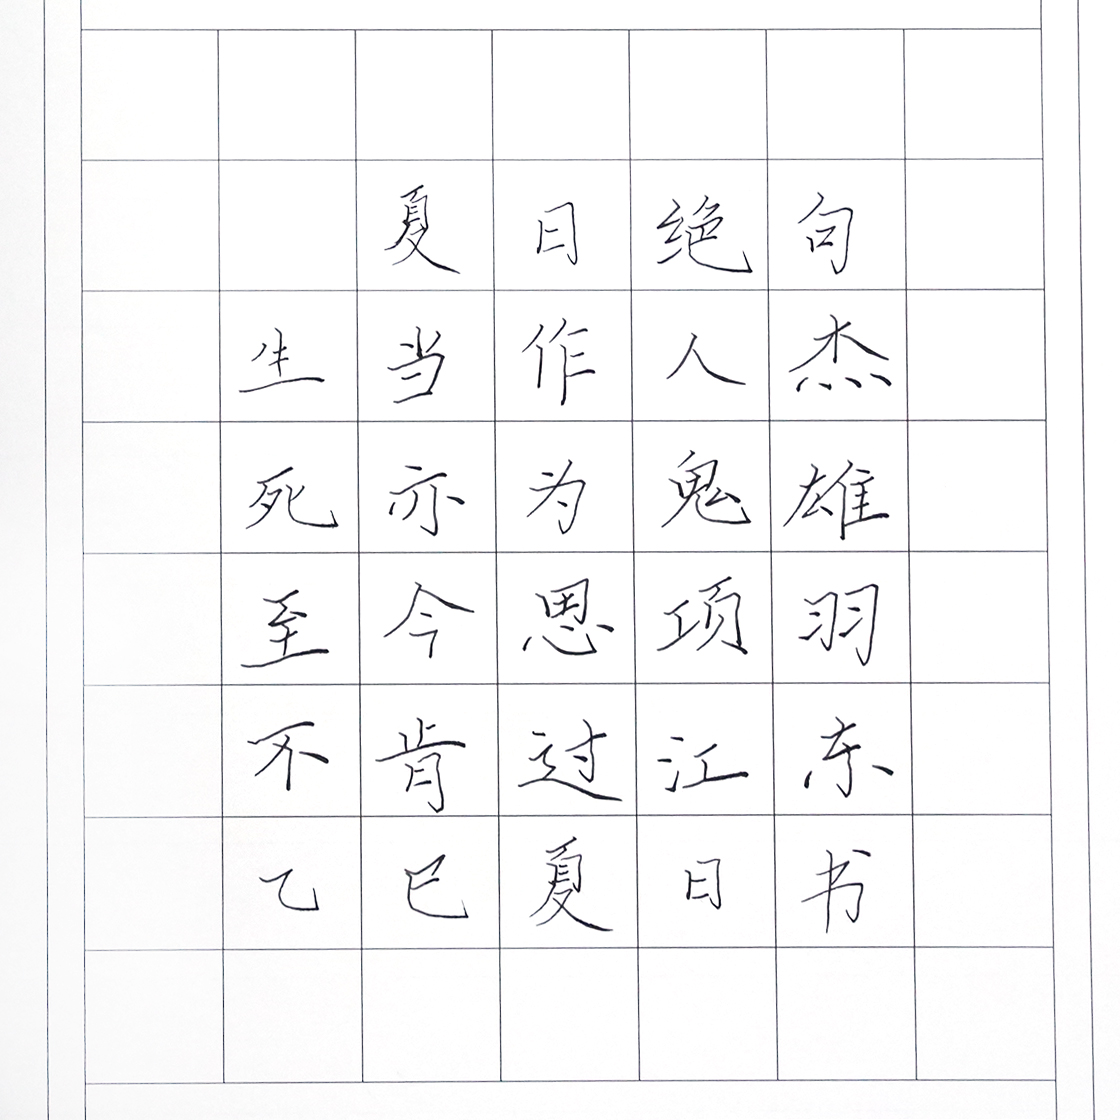 夏日绝句
生当作人杰
死亦为鬼雄
至今思项羽
不肯过江东
乙巳夏日书